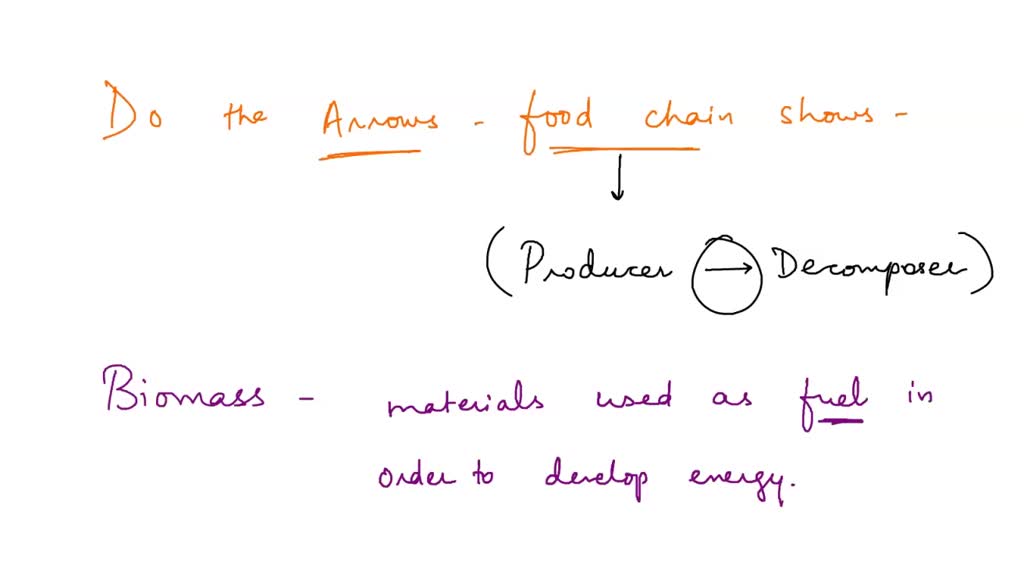 Do the Arrows - food chain shows -
(Producer → Decomposer)
Biomass - materials used as fuel in
order to develop energy.